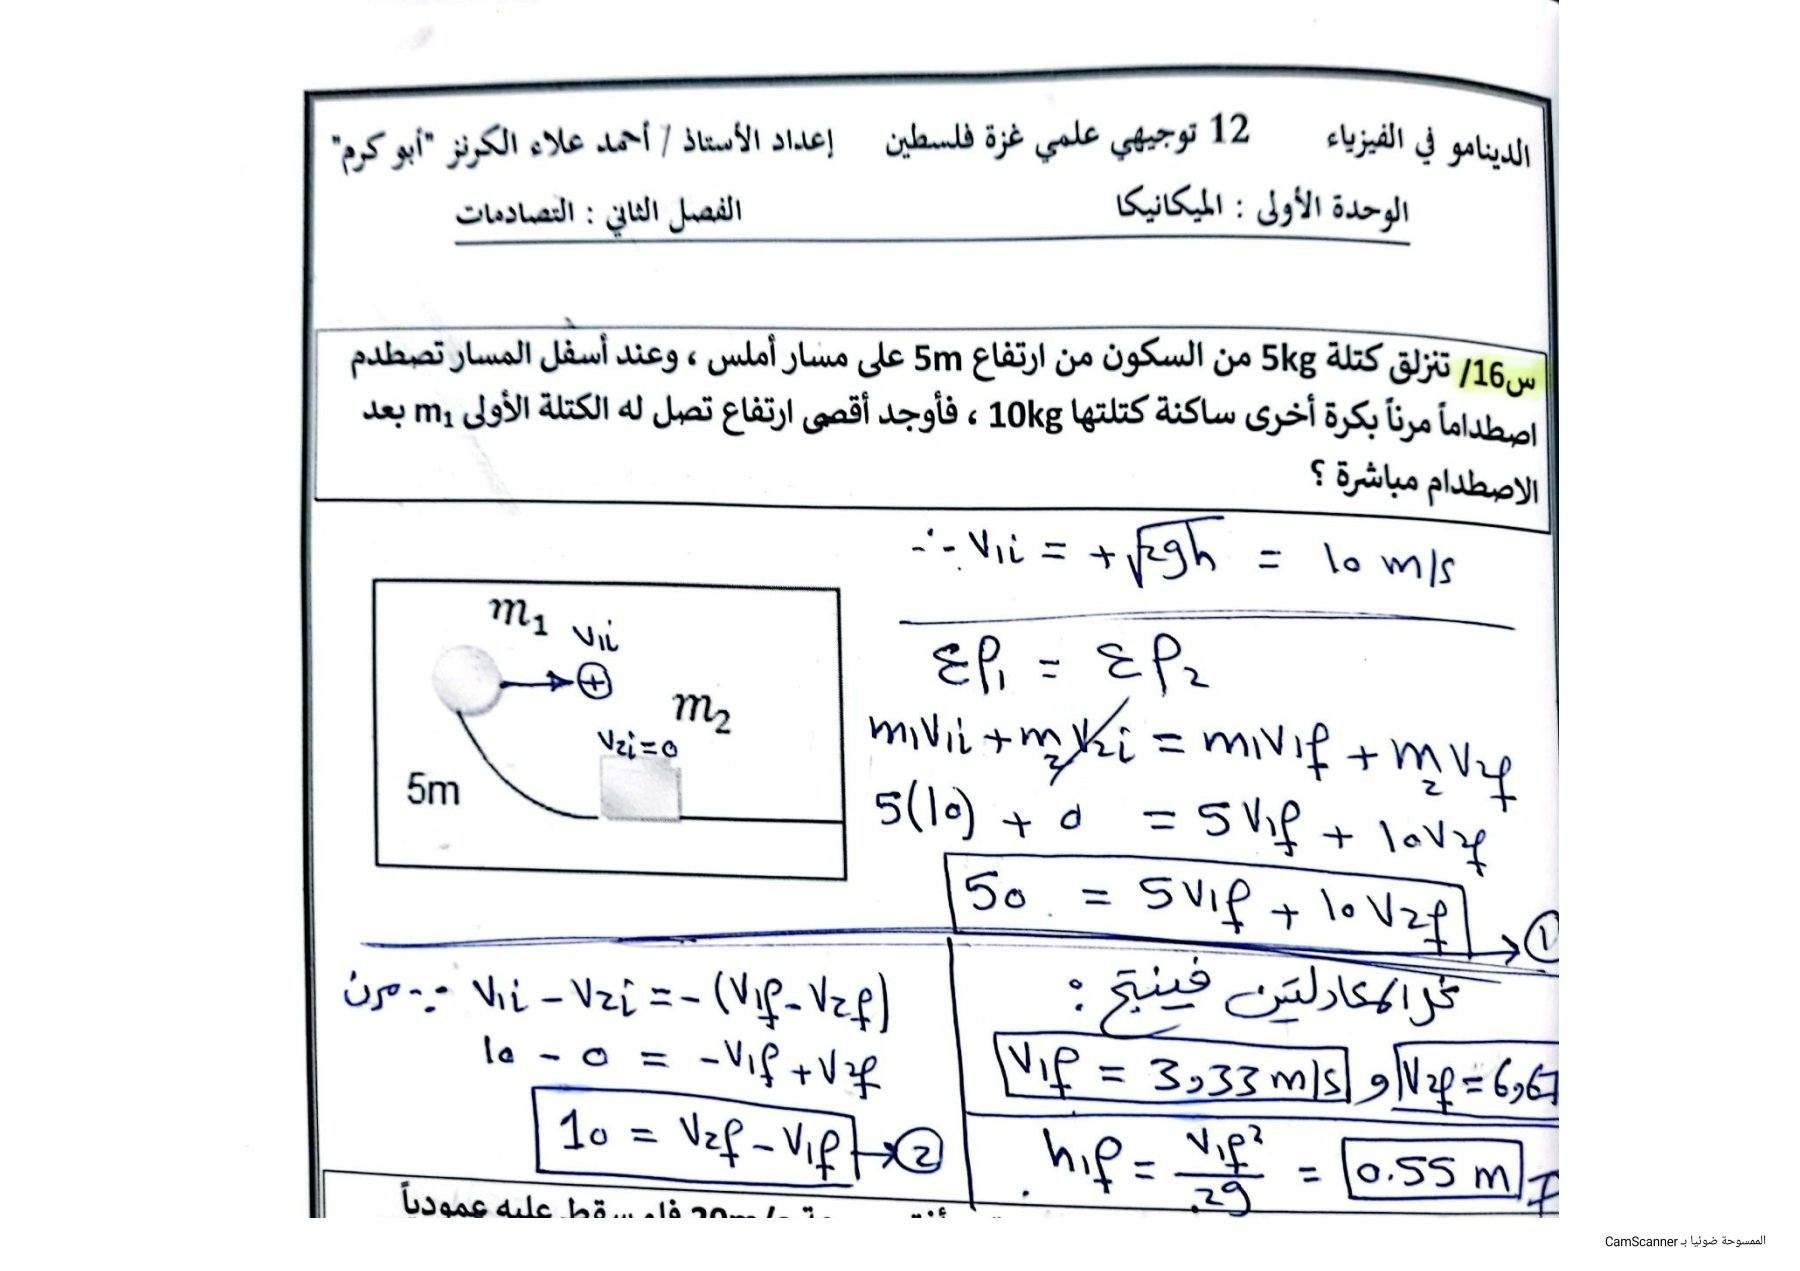 الدينامو في الفيزياء 12 توجيهي علمي غزة فلسطين إعداد الأستاذ / أحمد علاء الكرنز "أبو كرم"
الوحدة الأولى : الميكانيكا الفصل الثاني : التصادمات
س16/ تنزلق كتلة 5kg من السكون من ارتفاع 5m على مسار أملس ، وعند أسفل المسار تصطدم
اصطداماً مرناً بكرة أخرى ساكنة كتلتها 10kg ، فأوجد أقصى ارتفاع تصل له الكتلة الأولى m₁ بعد
الاصطدام مباشرة ؟
∴ V1i = +√2gh = 10 m/s
m₁ V1i
V2i=0 m₂
5m
Σρ₁ = Σρ₂
m1V1i + m2V2i = m1V1f + m2V2f
5(10) + 0 = 5V1f + 10V2f
50 = 5V1f + 10V2f → ①
∵ مرن V1i - V2i = -(V1f - V2f)
10 - 0 = -V1f + V2f
10 = V2f - V1f → ②
بحل المعادلتين فينتج :
V1f = 3,33 m/s و V2f = 6,67
h1f = V1f² / 2g = 0.55 m
20m/s فلو سقط عليه عمودياً
الممسوحة ضوئيا بـ CamScanner